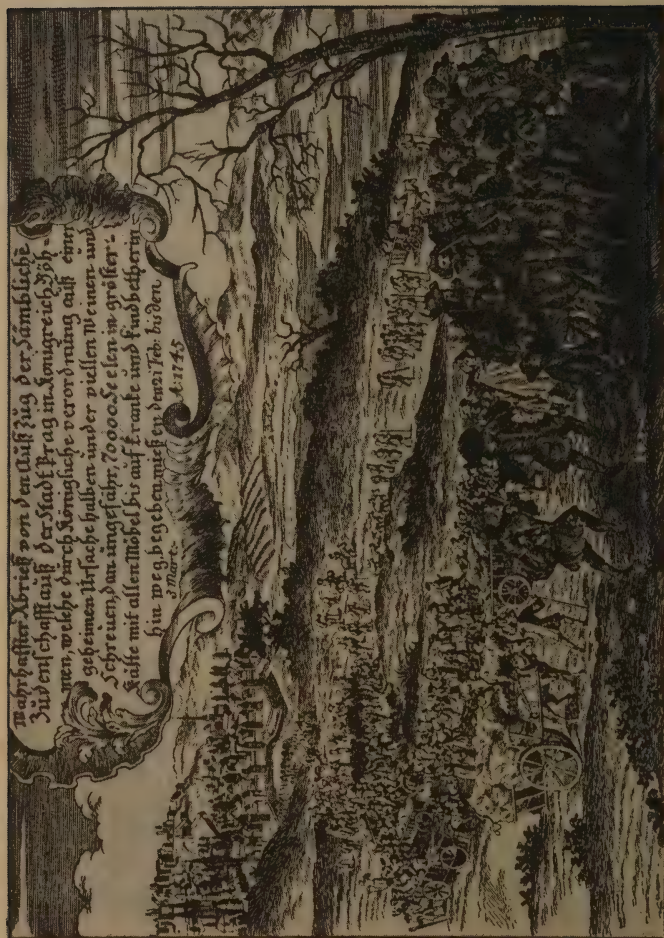 Warhaffter Abrieß von den Auß Zug der Sämbliche
Jüdenschafft auß der Stadt Prag in Königreich Böh=
men, welche durch Königliche verordnung auß einer
geheimen Ursache halben under viellen Weinen und
Schreuen, dan ungefähr, 70000. Seelen in gröster
Kälte mit allen Möbel bis auf Kranke und Kindbetherin
hin weg begeben mießen den 21 Feb: bis den
3 Mart: A: 1745